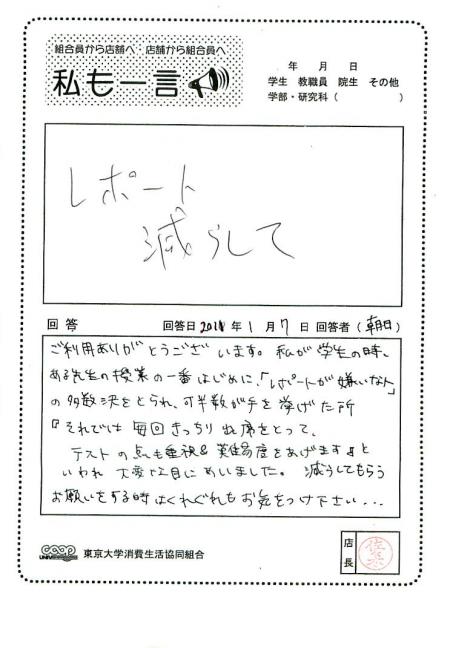 組合員から店舗へ 店舗から組合員へ
私も一言
年 月 日
学生 教職員 院生 その他
学部・研究科( )
レポート
減らして
回答 回答日 2011年 1月 7日 回答者(朝日)
ご利用ありがとうございます。私が学生の時、
ある先生の授業の一番はじめに、「レポートが嫌いな人」
の多数決をとられ、過半数が手を挙げた所
『それでは毎回きっちり出席をとって、
テストの点も重視&難易度をあげます』と
いわれ大変な目にあいました。減らしてもらう
お願いをする時はくれぐれもお気をつけ下さい...
coop
UNIV
東京大学消費生活協同組合
店長